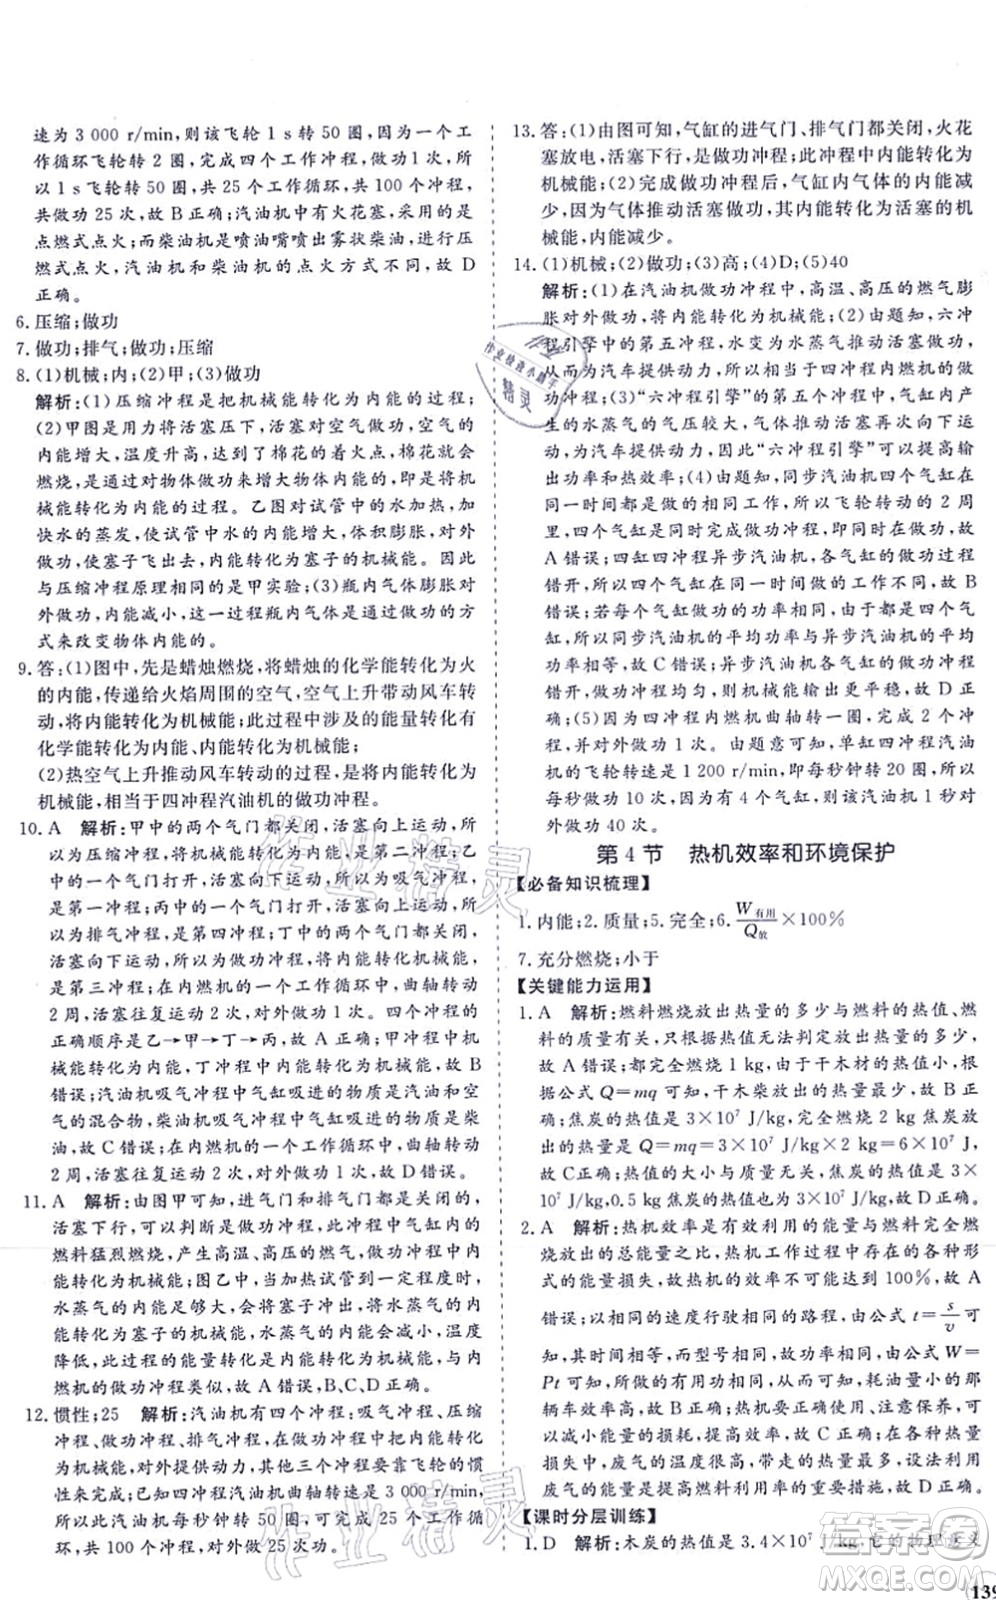 速为 3 000 r/min，则该飞轮 1 s 转 50 圈，因为一个工
作循环飞轮转 2 圈，完成四个工作冲程，做功 1 次，所
以 1 s 飞轮转 50 圈，共 25 个工作循环，共 100 个冲程，
共做功 25 次，故 B 正确；汽油机有火花塞，采用的是
点燃式点火；而柴油机是喷油嘴喷出雾状柴油，采用
压燃式点火，汽油机和柴油机的点火方式不同，故 D
正确。
6. 压缩；做功
7. 做功；排气；做功；压缩
8. (1)机械；内；(2)甲；(3)做功
解析：(1)压缩冲程是把机械能转化为内能的过程；
(2)甲图是用力将活塞压下，活塞对空气做功，空气的
内能增大，温度升高，达到了棉花的着火点，棉花就会
燃烧，是通过对物体做功来增大物体内能的，是将机
械能转化为内能的过程。乙图对试管中的水加热，加
快水的蒸发，使试管中水的内能增大，体积膨胀，对外
做功，使塞子飞出去，内能转化为塞子的机械能。因此
与压缩冲程原理相同的是甲实验；(3)瓶内气体膨胀对
外做功，内能减小，这一过程瓶内气体是通过做功的方
式来改变物体内能的。
9. 答：(1)图中，先是蜡烛燃烧，将蜡烛的化学能转化为火
的内能，传递给火焰周围的空气，空气上升带动风车转
动，内能转化为机械能；此过程中涉及的能量转化有
化学能转化为内能、内能转化为机械能；
(2)热空气上升推动风车转动的过程，是将内能转化为
机械能，相当于四冲程汽油机的做功冲程。
10. A 解析：甲中的两个气门都关闭，活塞向上运动，所
以为压缩冲程，是第二冲程；乙中的一个气门打
开，活塞向下运动，所以为吸气冲程，是第一冲程；丙
中的一个气门打开，活塞向上运动，所以
为排气冲程，是第四冲程；丁中的两个气门都
关闭，活塞向下运动，所以为做功冲程，
是第三冲程；在内燃机的一个工作循环中，曲轴转动
2 周，活塞往返运动 2 次，对外做功 1 次。四个冲程的
正确顺序是乙→甲→丁→丙，故 A 正确，故 B
错误；汽油机吸气冲程中气缸吸进的物质是汽油和空
气的混合物，柴油机吸气冲程中气缸吸进的物质是柴
油，故 C 错误；在内燃机的一个工作循环中，曲轴转动
2 周，活塞往复运动 2 次，对外做功 1 次，故 D 错误。
11. A 解析：由图甲可知，进气门和排气门都是关闭的，
活塞下行，可以判断是做功冲程，此冲程中气缸内的
燃料猛烈燃烧，产生高温、高压的燃气，做功使内能转
化为机械能；图乙中，当加热试管到一定时间时，
水蒸气的内能足够大，就会将塞子冲出，水蒸气的内能
转化为塞子的机械能，水蒸气的内能会减小，温度
降低，此过程的能量转化为内能转化为机械能，与内
燃机的做功冲程类似，故 A 错误，B、C、D 正确。
12. 惯性；25 解析：汽油机有四个冲程：吸气冲程、压缩
冲程、做功冲程、排气冲程，在做功冲程中内能转化为
机械能为汽车提供动力，其他三个冲程要靠飞轮的惯
性来完成；已知四冲程汽油机曲轴转速为 3 000 r/min，
所以此汽油机每秒钟转 50 圈，完成 25 个工作循
环，共 100 个冲程，对外做功 25 次。
13. 答：(1)由图可知，气缸的进气门、排气门都关闭，火花
塞放电，活塞下行，是做功冲程；此冲程中内能转化为
机械能；(2)完成做功冲程后，气缸内气体的内能减
少，因为气体推动活塞做功，其内能转化为活塞的机
械能，内能减少。
14. (1)机械；(2)做功；(3)高；(4)D；(5)40
解析：(1)在汽油机做功冲程中，高温、高压的燃气膨
胀对外做功，内能转化为机械能；(2)由题知，六冲
程引擎中的第五冲程，水变为水蒸气膨胀对外做功，
从而为汽车提供动力，所以第五冲程为做功冲程；
(3)“六冲程引擎”的第五个冲程中，汽缸内产
生的水蒸气的气压较大，活塞对外做功，多了一次活
塞对外做功，因此“六冲程引擎”可以提高输
出功率和热效率；(4)四缸四冲程同步汽油机的四个气缸在
同一时间都做相同的工作，所以飞轮转动的 2 周
里，四个气缸都同时经历一次做功冲程，即做功 4 次，故
A 错误；四缸四冲程异步汽油机，各气缸的做功过程
错开，所以四个气缸在同一时间做的工作不同，故 B
错误；若每个气缸做功的功率相同，都是四个气
缸，所以同步汽油机的平均功率与异步汽油机的平均
功率相同，故 C 错误；与同步汽油机相比，异步汽油
机的做功冲程均匀，所以工作时更平稳，故 D 正
确；(5)因为四冲程内燃机曲轴转一圈，完成 2 个冲
程，对外做功 1 次。由题意可知，单缸四冲程汽油
机的飞轮转速是 1 200 r/min，即每秒钟转 20 圈，对
外做功 10 次，若此汽油机有 4 个气缸，则该汽油机每秒
对外做功 40 次。
第 4 节 热机效率和环境保护
【必备知识梳理】
1. 内能；2. 质量；5. 完全；6. W有用/Q放×100%
7. 充分燃烧；小于
【关键能力运用】
1. A 解析：燃料燃烧放出热量的多少与燃料的热值、质
量有关，只根据热值无法判定放出热量的多少，
故 A 错误；完全燃烧 1 kg，由于干木材的热值较小，根
据公式 Q=mq 可知，干木柴放出的热量少，故 B 正确；
焦炭的热值是 3×10⁷ J/kg，完全燃烧 2 kg 焦炭放
出的热量是 Q=mq=3×10⁷ J/kg×2 kg=6×10⁷ J，
故 C 正确；热值的大小与质量无关，焦炭的热值是 3×
10⁷ J/kg，0.5 kg 焦炭的热值也是 3×10⁷ J/kg，故 D 正确。
2. A 解析：热机效率是有效利用的能量与燃料完全燃
烧放出的总能量之比，热机工作过程中存在各种形
式的能量损失，故热机的效率不可能达到 100%，故 A
错误；以相同的速度行驶相同的路程，由公式 t=s/v 可
知，其时间相等，而功率不同，故做功不同，由公式 W=
Pt 可知，做功相同时，耗油量小的那
辆车效率高，故 B 正确；注意保养，可以
减小能量的损失，提高热机效率，故 C 正确；内燃机中，
废气的能量损失最大，故设法利用
废气的能量是提高热机效率的重要措施，故 D 正确。
【课时分层训练】
1. D 解析：木炭的热值是 3.4×10⁷ J/kg，它的物理意义
139